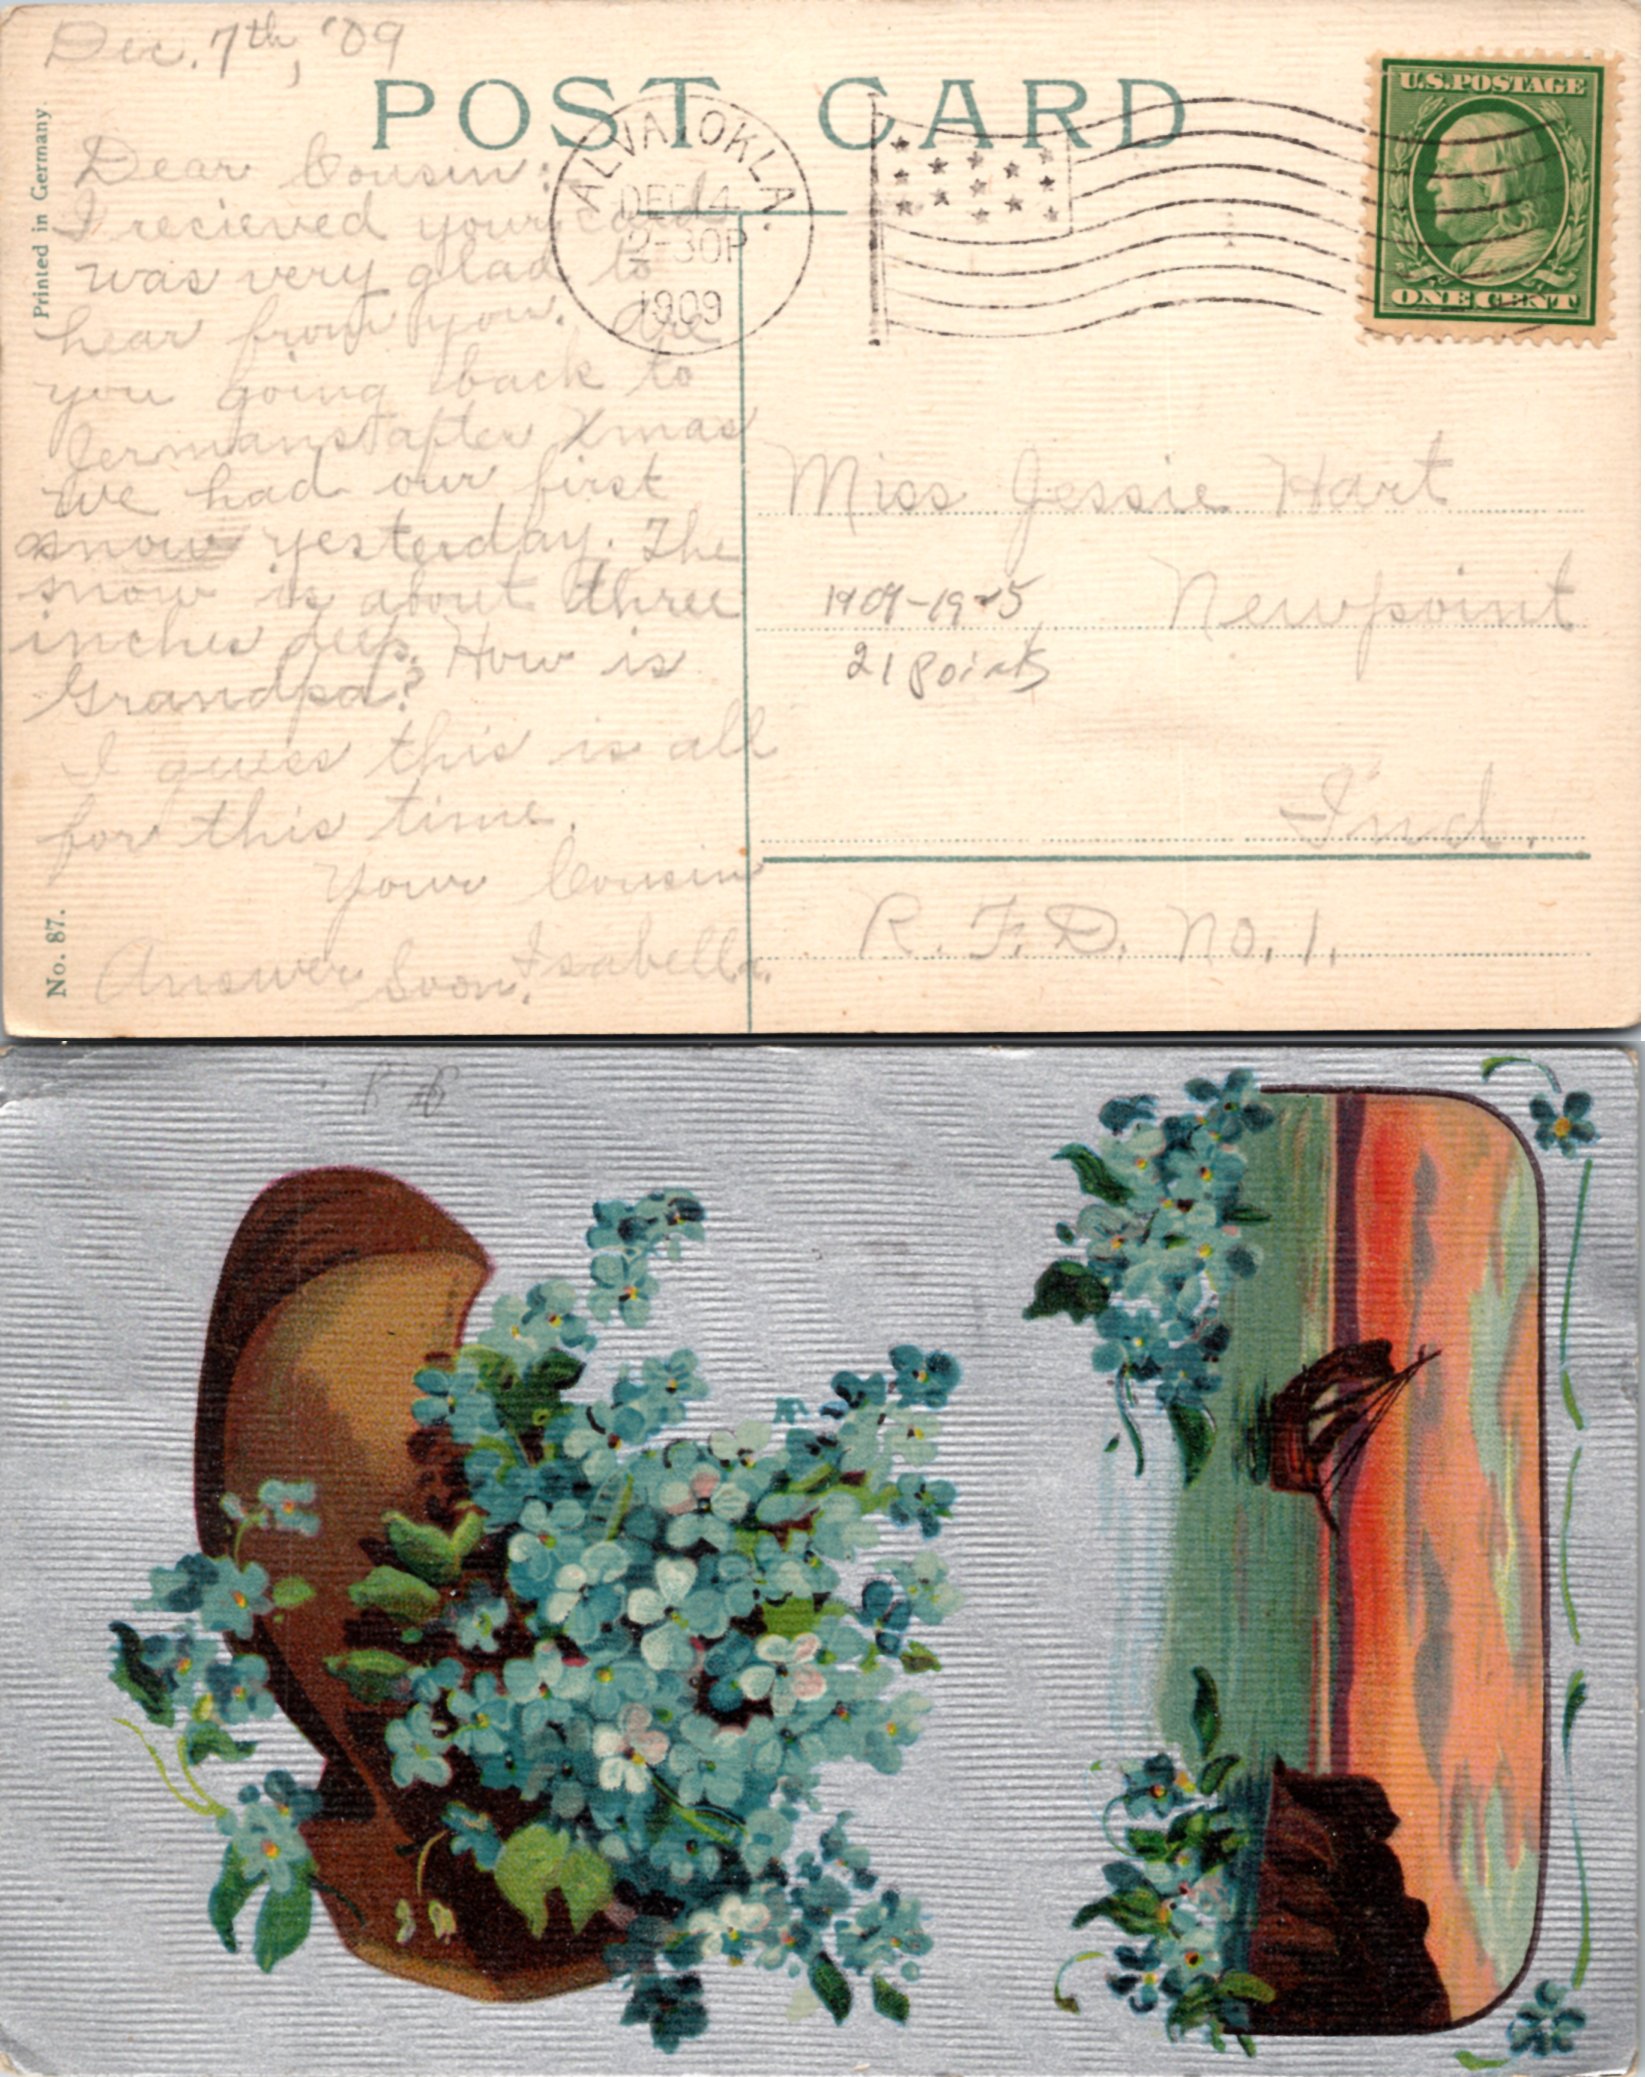 Dec. 7th, '09
POST CARD
Printed in Germany.
ALVA, OKLA.
DEC 14
2-30P
1909
U.S. POSTAGE
ONE CENT
Dear Cousin:
I recieved your card
was very glad to
hear from you. Are
you going back to
Germans after Xmas
We had our first
snow yesterday. The
snow is about three
inches deep. How is
Grandpa?
I guess this is all
for this time.
Your Cousin
Isabella.
Answer Soon.
No. 87.
Miss Jessie Hart
Newpoint
1909-1925
21 Points
Ind.
R. F. D. No. 1.